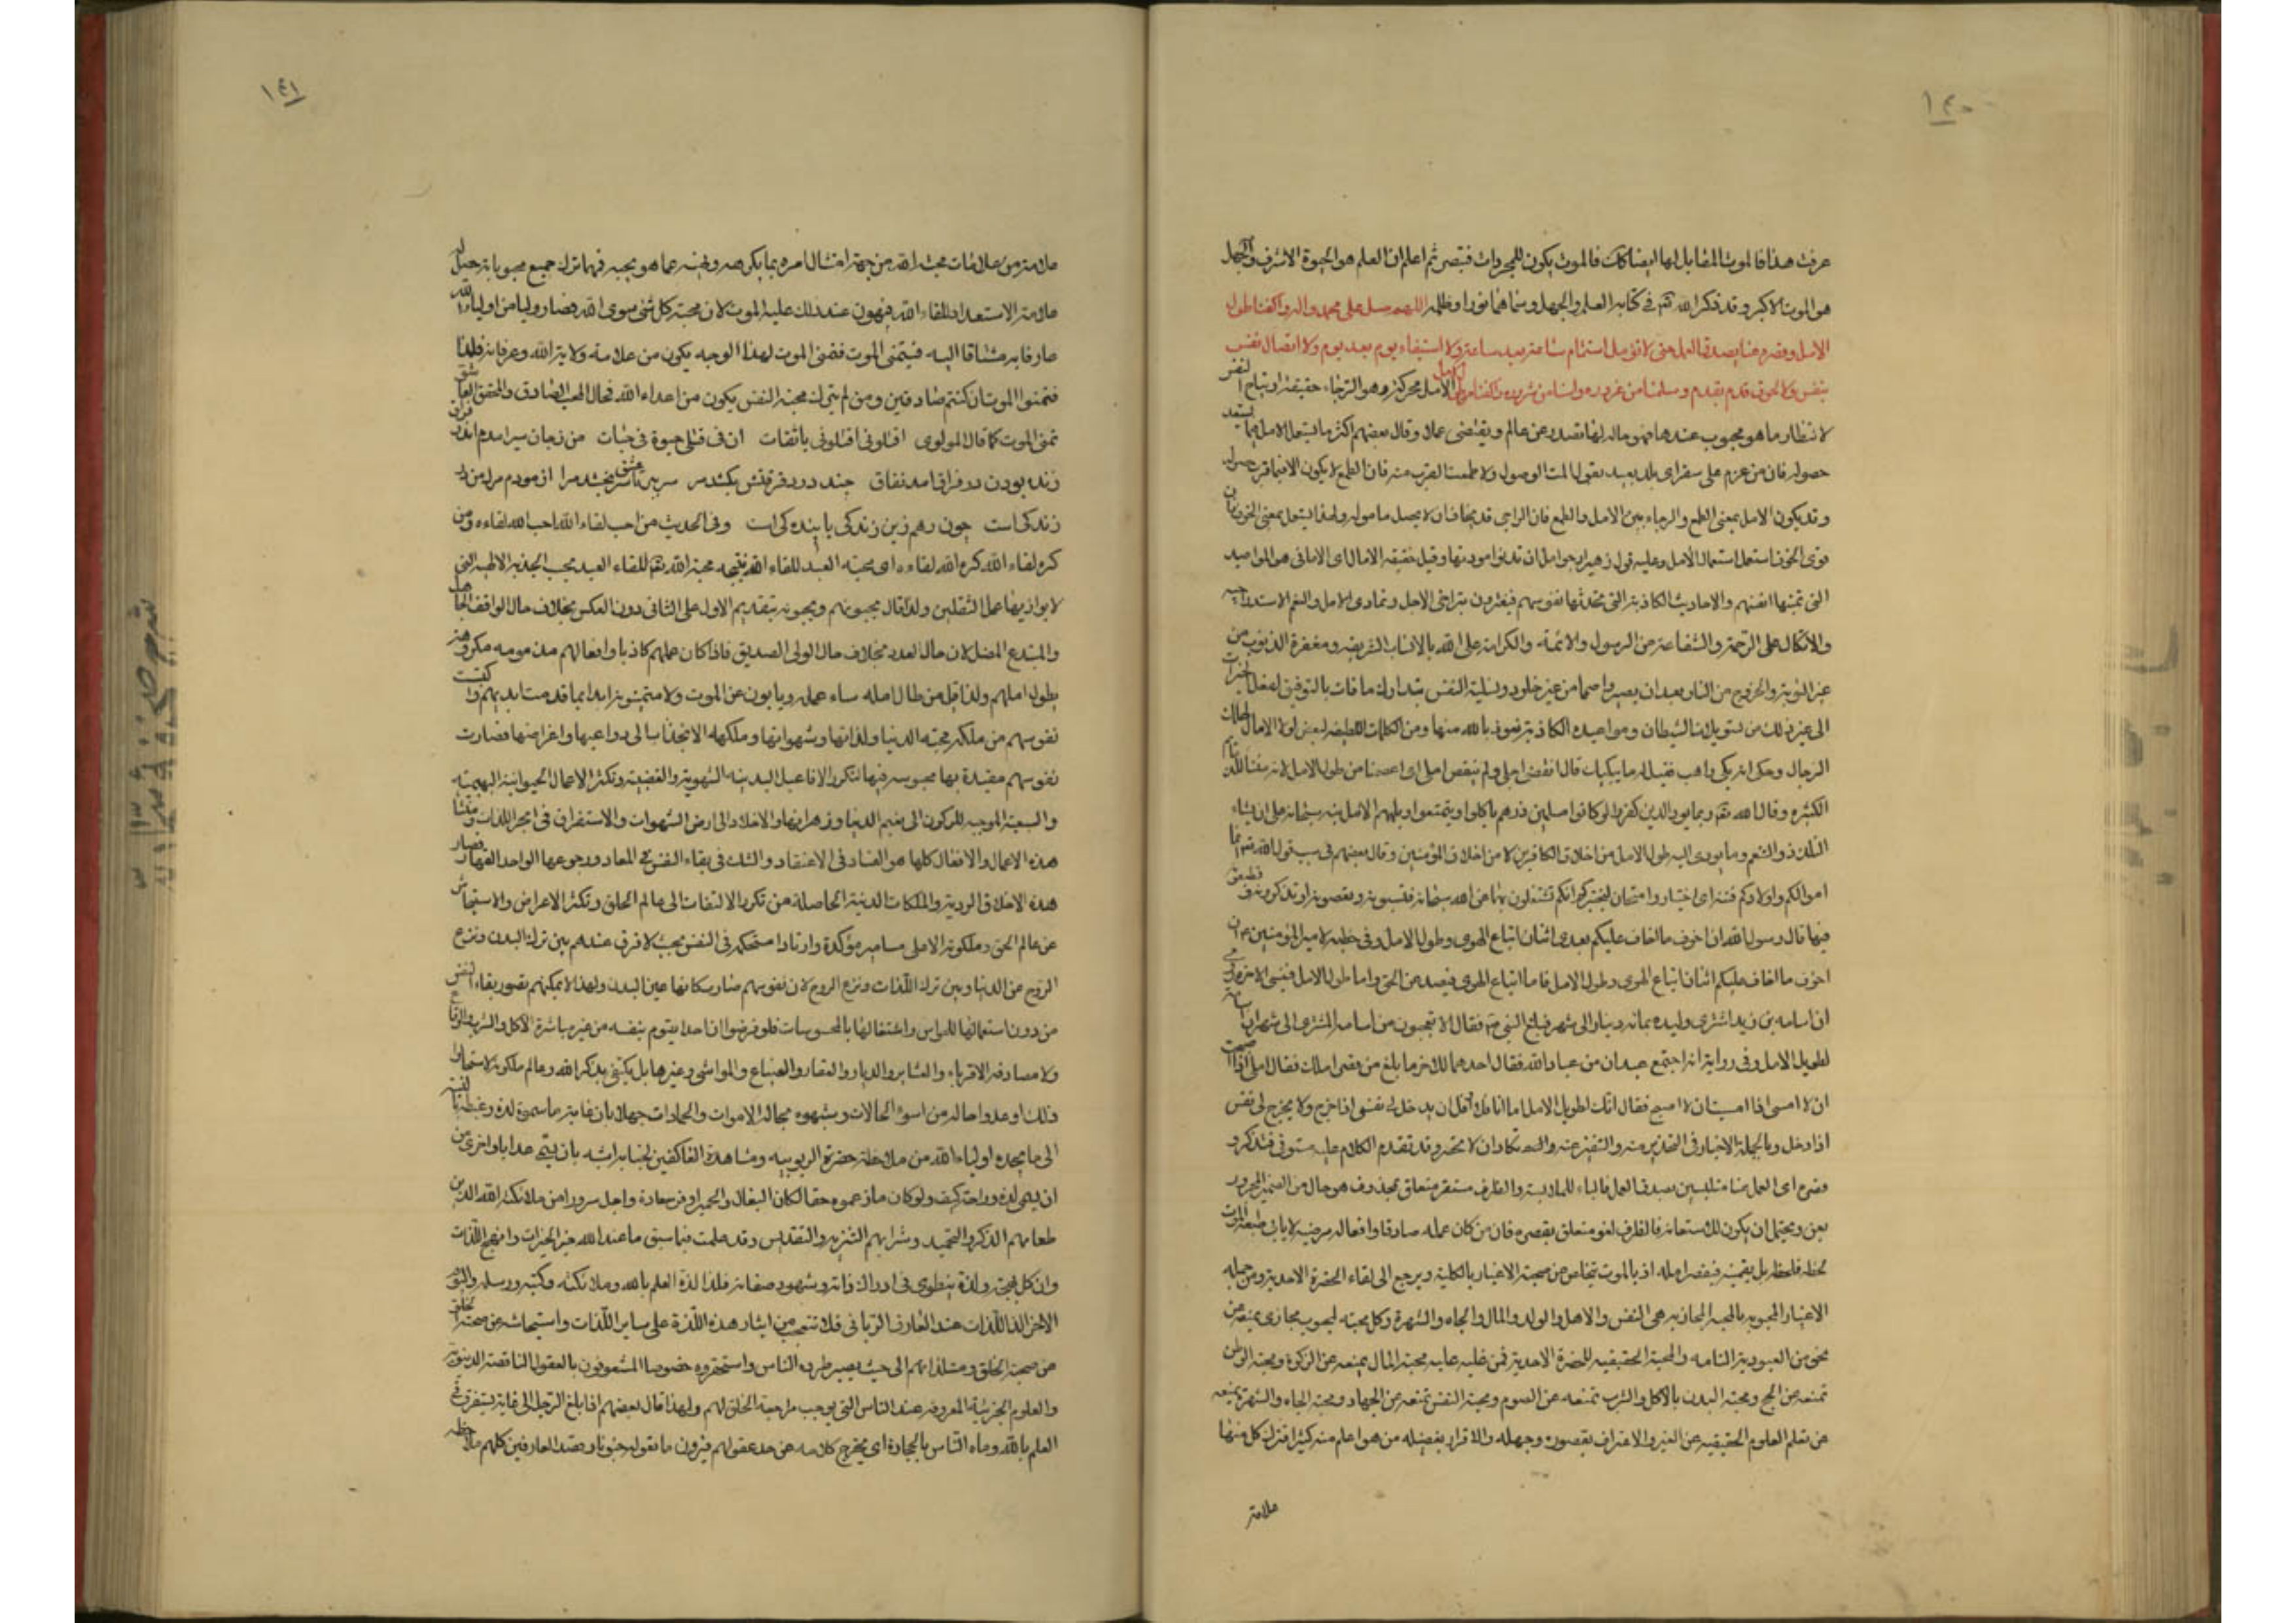 ١٤٠
عرفت هذا فالموت المقابل لها ايضا كك فالموت يكون للمجردات فتبصر ثم اعلم ان العلم هو الحيوة الاشرف والجهل
هو الموت الاكبر وقد ذكر الله تعم في كتابه العلم والجهل وسماهما نورا وظلمه اللهم صل على محمد واله واكفنا طول
الامل وقصره عنا بصدق العمل حتى لا نؤمل استتمام ساعة بعد ساعة ولا استيفاء يوم بعد يوم ولا اتصال نفس
بنفس ولا لحوق قدم بقدم وسلمنا من غروره وامنا من شروره الامل محركة هو الرجاء حقيقة ارتياح النفس
لانتظار ما هو محبوب عندها فهو حالة لها تصدر عن علم ويقتضى عملا وقال بعضهم اكثر ما يستعمل الامل فيما يستبعد
حصوله فان من عزم على سفر الى بلد بعيد يقول املت الوصول ولا طمعت الا لقرب منه فان الطمع لا يكون الا فيما قرب حصوله
وقد يكون الامل بمعنى الطمع والرجاء بين الامل والطمع فان الراجي قد يخاف ان لا يحصل ماموله ولهذا يستعمل بمعنى الخوف فان
قوى الخوف استعمل استعمال الامل وعليه قول زهير ارجو وامل ان تدنو مودتها وقيل حقيقه الامال اى الامانى هو المواعيد
التى تمنيها انفسهم والاحاديث الكاذبة التى تحدثها نفوسهم فيغترون بتراخى الاجل وتمادى الامل والنعم الاستدراجيه
والاتكال على الرحمة والشفاعة من الرسول والائمة والكرامة على الله بالانساب الشريفه ومغفرة الذنوب من
غير التوبة والخروج من النار بعد ان يصيروا حمما من غير خلود وتسلية النفس بتدارك ما فات بالتوفيق لفعل الخيرات
الى غير ذلك من تسويلات الشيطان ومواعيده الكاذبة نعوذ بالله منها ومن الكلمات اللطيفه لبعض لولا الامال لهلك
الرجال وحكى انه بكى راهب فقيل له ما يبكيك قال انقضى اجلى ولم ينقص املى
الكثيره وقال الله تعم ربما يود الذين كفروا لو كانوا مسلمين ذرهم ياكلوا ويتمتعوا ويلههم الامل نبه سبحانه على ان ايثاء
التلذذ والتنعم وما يودى اليه طول الامل من اخلاق الكافرين لا من اخلاق المؤمنين وقال بعضهم في سبب قوله تعم انما
اموالكم واولادكم فتنه اى اختبار وامتحان
فيها قال رسول الله ان اخوف ما اخاف عليكم بعدى اثنان اتباع الهوى وطول الامل وفى خطبه لامير المؤمنين ع ان
اخوف ما اخاف عليكم اثنان اتباع الهوى وطول الامل فاما اتباع الهوى فيصد عن الحق واما طول الامل فينسى الاخرة
ان اسامه بن زيد اشترى وليده بمائه دينار الى شهر فبلغ النبى فقال الا تعجبون من اسامه المشترى الى شهر ان اسامة
لطويل الامل وفى رواية انه اجتمع عبدان من عباد الله فقال احدهما للاخر ما بلغ من قصر املك فقال املى اذا اصبحت
ان لا امسى اذا امسيت ان لا اصبح فقال انك لطويل الامل اما انا فلا اومل ان يدخل لى نفس اذا خرج ولا يخرج لى نفس
اذا دخل وبالجملة الاخبار فى التحذير منه والتنفير عنه تكاد ان لا تحصر وقد تقدم الكلام عليه مستوفى فتذكر و
قصره اى العمل عنا متلبسين بصدق العمل فالباء للملابسة والظرف مستقر متعلق بمحذوف هو حال من الضمير المجرور
بعن ويحتمل ان يكون للاستعانه فالظرف لغو متعلق بقصره فان من كان عمله صادقا وافعاله مرضيه لا يابى الموت
لحظه فلحظه بل يقصر امله اذ بالموت يتخلص من صحبة الاغيار بالكلية ويرجع الى لقاء الحضرة الاحدية ومن جمله
الاغيار المحبوبه بالمحبه المجازيه هى النفس والاهل والولد والمال والجاه والشهرة وكل محبته لمحبوب مجازى يمنعه عن
نحو من العبودية التامه والمحبة الحقيقيه للحضرة الاحدية فمن غلب عليه محبة المال يمنعه عن الزكوة ومحبة الوطن
تمنعه عن الحج ومحبة البدن بالاكل والشرب تمنعه عن الصوم ومحبة النفس تمنعه عن الجهاد ومحبة الجاه والشهرة يمنعه
عن تعلم العلوم الحقيقيه عن الغير والاعتراف بقصوره وجهله والاقرار بفضيله من هو اعلم منه كثيرا فترك كل منها
علامة
١٤١
علامة من علامات محبة الله من جهة امتثال امره بما يكرهه ونهيه عما هو يحبه فمهما ترك جميع محبوباته حصل له
علامة الاستعداد للقاء الله فيهون عند ذلك عليه الموت لان محبة كل شئ سوى الله وصار وليا من اولياء الله
عارفا به مشتاقا اليه فيتمنى الموت فتمنى الموت لهذا الوجه يكون من علامة ولاية الله وعرفانه فلذا
فتمنوا الموت ان كنتم صادقين ومن لم يترك محبة النفس يكون من اعداء الله فحال المحب الصادق والمحقق العاشق
تمنى الموت كما قال المولوى اقتلونى اقتلونى يا ثقات ان فى قتلى حيوة فى حيات
زنده بودن در فراق امد نفاق چند درد فرقتش بكشد مرا ازمودم مرك من در
زندكى است چون رهم زين زندكى پايندكى است وفى الحديث من احب لقاء الله احب الله لقاءه ومن
كره لقاء الله كره الله لقاءه اى محبة العبد للقاء الله نتيجه محبة الله تعم للقاء العبد بحب الجذبه الالهيه التى
لا يوازيها عمل الثقلين ولذا قال يحبهم ويحبونه بتقديم الاول على الثانى دون العكس بخلاف حال الواقف الجاهل
والمبتدع المضل لان حال العدو بخلاف حال الولى الصديق فاذا كان عملهم كاذبا وافعالهم مذمومه مكروهة
بطول املهم ولذا قيل من طال امله ساء عمله ويابون عن الموت ولا يتمنونه ابدا بما قدمت ايديهم واكتسبت
نفوسهم من ملكة محبه الدنيا ولذاتها وشهواتها وملكه الانجذاب الى دواعيها واغراضها فصارت
نفوسهم مقيدة بها محبوسه فيها لتكرر الافاعيل البدنيه الشهوية والغضبية وتكثر الاعمال الحيوانية البهيميه
والسبعية الموجبه للركون الى نعيم الدنيا وزهراتها والاخلاد الى ارض الشهوات والاستغراق فى ابحر اللذات ومنشأ
هذه الاعمال والافعال كلها هو الفساد فى الاعتقاد والشك فى بقاء النفس فى المعاد ورجوعها الواحد القهار فصار
هذه الاخلاق الردية والملكات الدنية الحاصلة من تكرر الالتفات الى عالم الخلق وتكثر الاعراض والاستيحاش
عن عالم الحق وملكوته الاعلى مسامير مؤكدة واوتادا مستحكمه فى النفس بحيث لا فرق عندهم بين ترك البدن ونزع
الروح عن الدنيا وبين ترك اللذات ونزع الروح لان نفوسهم صار مكانها عين البدن ولهذا لا يمكنهم تصور بقاء النفس
من دون استعمالها للحواس واشتغالها بالمحسوسات فلو فرضوا ان احدا يقوم بنفسه من غير مباشرة الاكل والشرب والوقاع
ولا مصادفه الاقرباء والعشاير والديار والعقار والضياع والمواشى وغيرها بل يكتفى بذكر الله وعالم ملكوته لاستحالوا
ذلك او عدوا حاله من اسوء الحالات وشبهوه بحاله الاموات والجمادات جهلا بان غاية ما سموه لذة وغبطة
الى ما يجده اولياء الله من ملاحظة حضرة الربوبيه ومشاهدة العاكفين لجنابه اشبه بان يسمى عذابا واحرى من
ان يسمى لذة وراحة كيف ولو كان ما زعموه حقا لكان البغال والحمير اوفر سعادة واجل سرورا من ملائكة الله الذين
طعامهم الذكر والتحميد وشرابهم التنزيه والتقديس وقد علمت فيما سبق ما عند الله خير الخيرات وابهج اللذات
وان كل بهجة ولذة ينطوى فى ادراك ذاته وشهود صفاته فلذا لذة العلم بالله وملائكته وكتبه ورسله واليوم
الاخر الذ اللذات عند العارف الربانى فلا تتعجب من ايثار هذه اللذة على ساير اللذات واستيحاشه عن صحبة الخلق
عن صحبة الخلق ومستلذاتهم الى حيث يصير طرده الناس واستحقروه خصوصا المشعوفون بالعقول الناقصة الدنيوية
والعلوم الجزئية المعروفه عند الناس التى يوجب مراجعة الخلق لهم ولهذا قال بعضهم اذا بلغ الرجل الى غاية يستغرق فى
العلم بالله رماه الناس بالحجارة اى يخرج كلامه عن حد عقولهم فيرون ما يقوله جنونا وقصد العارفين كلهم ملاحظه